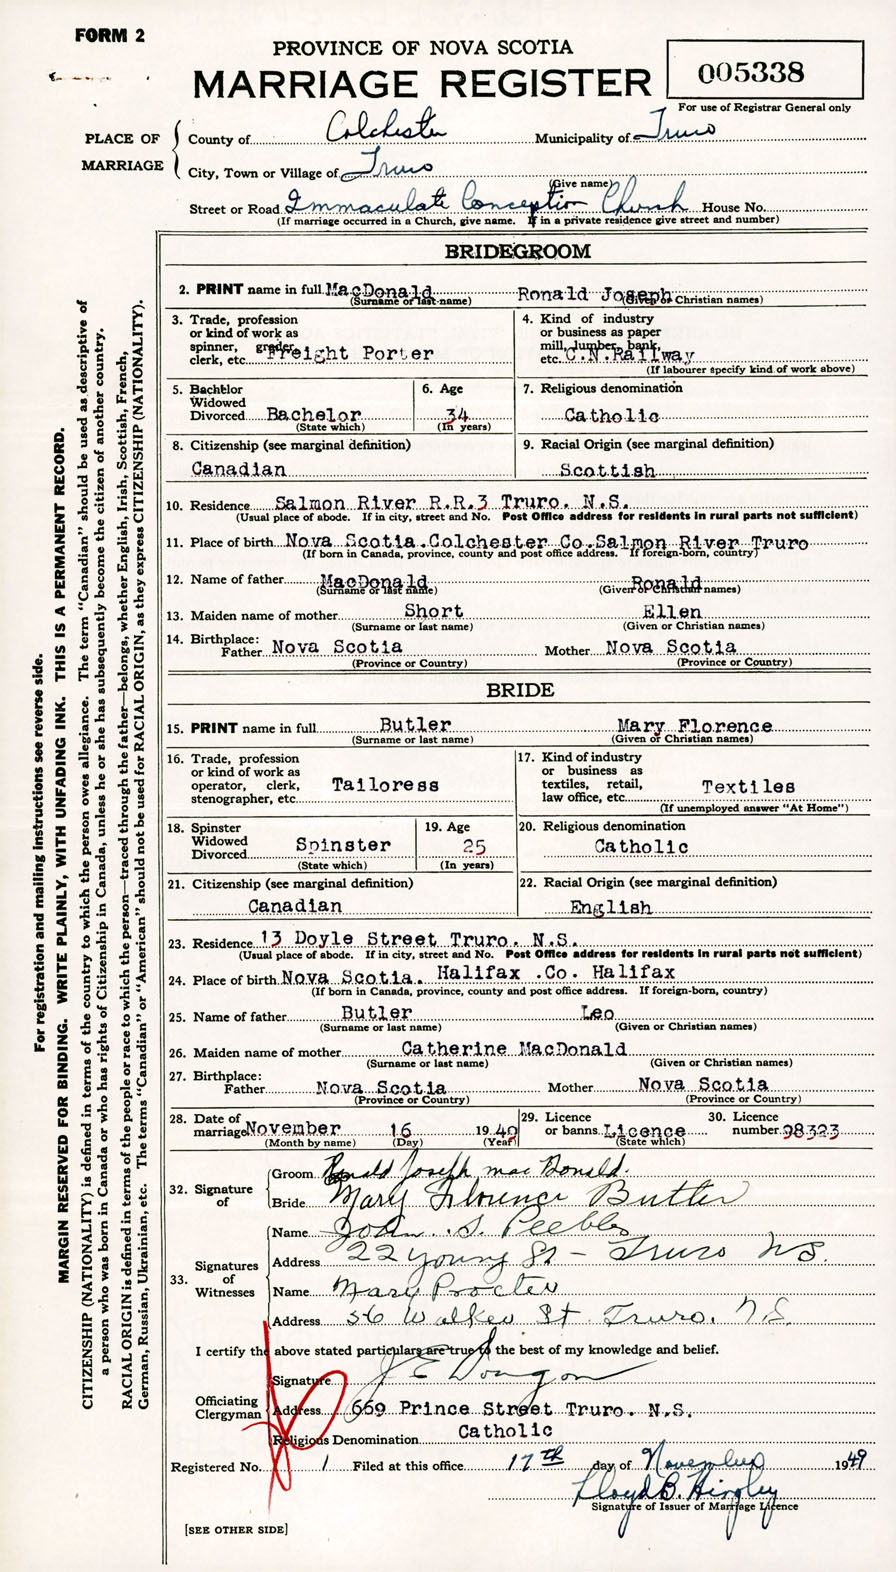 FORM 2
PROVINCE OF NOVA SCOTIA
MARRIAGE REGISTER
005338
For use of Registrar General only
PLACE OF MARRIAGE
County of Colchester Municipality of Truro
City, Town or Village of Truro
(Give name)
Street or Road Immaculate Conception Church House No.
(If marriage occurred in a Church, give name. If in a private residence give street and number)
BRIDEGROOM
2. PRINT name in full MacDonald Ronald Joseph
(Surname or last name) (Given or Christian names)
3. Trade, profession or kind of work as spinner, grader, clerk, etc. Freight Porter
4. Kind of industry or business as paper mill, lumber, bank, etc. C.N.Railway
(If labourer specify kind of work above)
5. Bachelor Widowed Divorced Bachelor
(State which)
6. Age 34
(In years)
7. Religious denomination
Catholic
8. Citizenship (see marginal definition)
Canadian
9. Racial Origin (see marginal definition)
Scottish
10. Residence Salmon River R.R.3 Truro. N.S.
(Usual place of abode. If in city, street and No. Post Office address for residents in rural parts not sufficient)
11. Place of birth Nova Scotia.Colchester Co.Salmon River Truro
(If born in Canada, province, county and post office address. If foreign-born, country)
12. Name of father MacDonald Ronald
(Surname or last name) (Given or Christian names)
13. Maiden name of mother Short Ellen
(Surname or last name) (Given or Christian names)
14. Birthplace:
Father Nova Scotia Mother Nova Scotia
(Province or Country) (Province or Country)
BRIDE
15. PRINT name in full Butler Mary Florence
(Surname or last name) (Given or Christian names)
16. Trade, profession or kind of work as operator, clerk, stenographer, etc. Tailoress
17. Kind of industry or business as textiles, retail, law office, etc. Textiles
(If unemployed answer "At Home")
18. Spinster Widowed Divorced Spinster
(State which)
19. Age
25
(In years)
20. Religious denomination
Catholic
21. Citizenship (see marginal definition)
Canadian
22. Racial Origin (see marginal definition)
English
23. Residence 13 Doyle Street Truro. N.S.
(Usual place of abode. If in city, street and No. Post Office address for residents in rural parts not sufficient)
24. Place of birth Nova Scotia. Halifax .Co. Halifax
(If born in Canada, province, county and post office address. If foreign-born, country)
25. Name of father Butler Leo
(Surname or last name) (Given or Christian names)
26. Maiden name of mother Catherine MacDonald
(Surname or last name) (Given or Christian names)
27. Birthplace:
Father Nova Scotia Mother Nova Scotia
(Province or Country) (Province or Country)
28. Date of marriage November 16 1949
(Month by name) (Day) (Year)
29. Licence or banns Licence
(State which)
30. Licence number 98323
32. Signature of
Groom Ronald Joseph mac Donald.
Bride Mary Florence Butler
33. Signatures of Witnesses
Name John S. Peebles
Address 22 Young St - Truro NS.
Name Mary Procter
Address 56 Walker St Truro. N.S.
I certify the above stated particulars are true to the best of my knowledge and belief.
Officiating Clergyman
Signature J E
Address 669 Prince Street Truro. N.S.
Religious Denomination Catholic
Registered No. 1 Filed at this office 17th day of November 1949
Lloyd B. Hingley
Signature of Issuer of Marriage Licence
[SEE OTHER SIDE]
For registration and mailing instructions see reverse side.
MARGIN RESERVED FOR BINDING. WRITE PLAINLY, WITH UNFADING INK. THIS IS A PERMANENT RECORD.
CITIZENSHIP (NATIONALITY) is defined in terms of the country to which the person owes allegiance. The term "Canadian" should be used as descriptive of
a person who was born in Canada or who has rights of Citizenship in Canada, unless he or she has subsequently become the citizen of another country.
RACIAL ORIGIN is defined in terms of the people or race to which the person—traced through the father—belongs, whether English, Irish, Scottish, French,
German, Russian, Ukrainian, etc. The terms "Canadian" or "American" should not be used for RACIAL ORIGIN, as they express CITIZENSHIP (NATIONALITY).